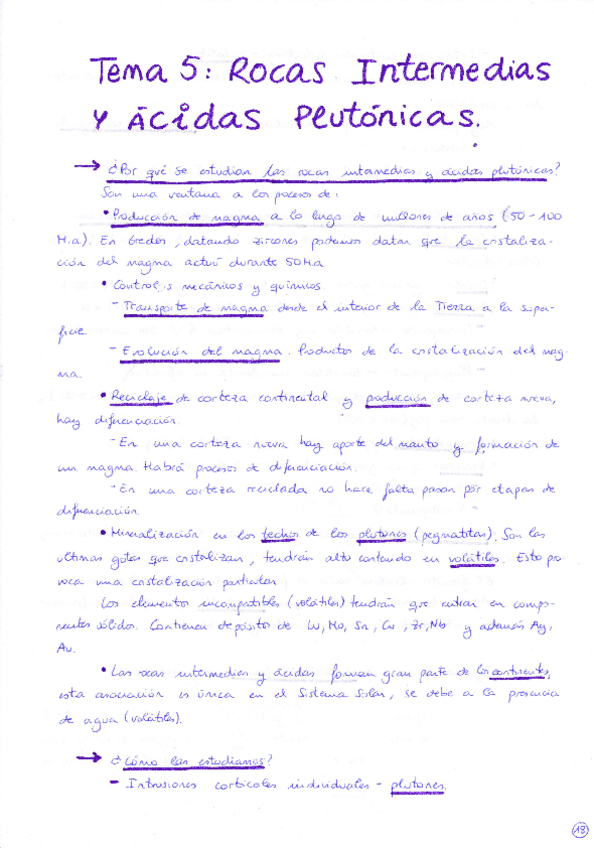 Tema 5: Rocas Intermedias
Y Ácidas Plutónicas.
→ ¿Por qué se estudian las rocas intermedias y ácidas plutónicas?
Son una ventana a los procesos de:
• Producción de magma a lo largo de millones de años (50-100
M.a). En Gredos, datando zircones podemos datar que la cristaliza-
ción del magma actuó durante 50Ma
• Controles mecánicos y químicos.
- Transporte de magma desde el interior de la Tierra a la super-
ficie.
- Evolución del magma. Productos de la cristalización del mag-
ma.
• Reciclaje de corteza continental y producción de corteza nueva,
hay diferenciación.
- En una corteza nueva hay aporte del manto y formación de
un magma. Habrá procesos de diferenciación.
- En una corteza reciclada no hace falta pasar por etapas de
diferenciación.
• Mineralización en los techos de los plutones (pegmatitas). Son las
ultimas gotas que cristalizan, tendrán alto contenido en volátiles. Esto pro
voca una cristalización particular
Los elementos incompatibles (volátiles) tendrán que entrar en compo-
nentes sólidos. Contienen depósitos de W, Mo, Sn, Cu, Zr, Nb y además Ag,
Au.
• Las rocas intermedias y ácidas forman gran parte de los continentes,
esta asociación es única en el Sistema Solar, se debe a la presencia
de agua (volátiles).
→ ¿Cómo las estudiamos?
- Intrusiones corticales individuales - plutones.
18